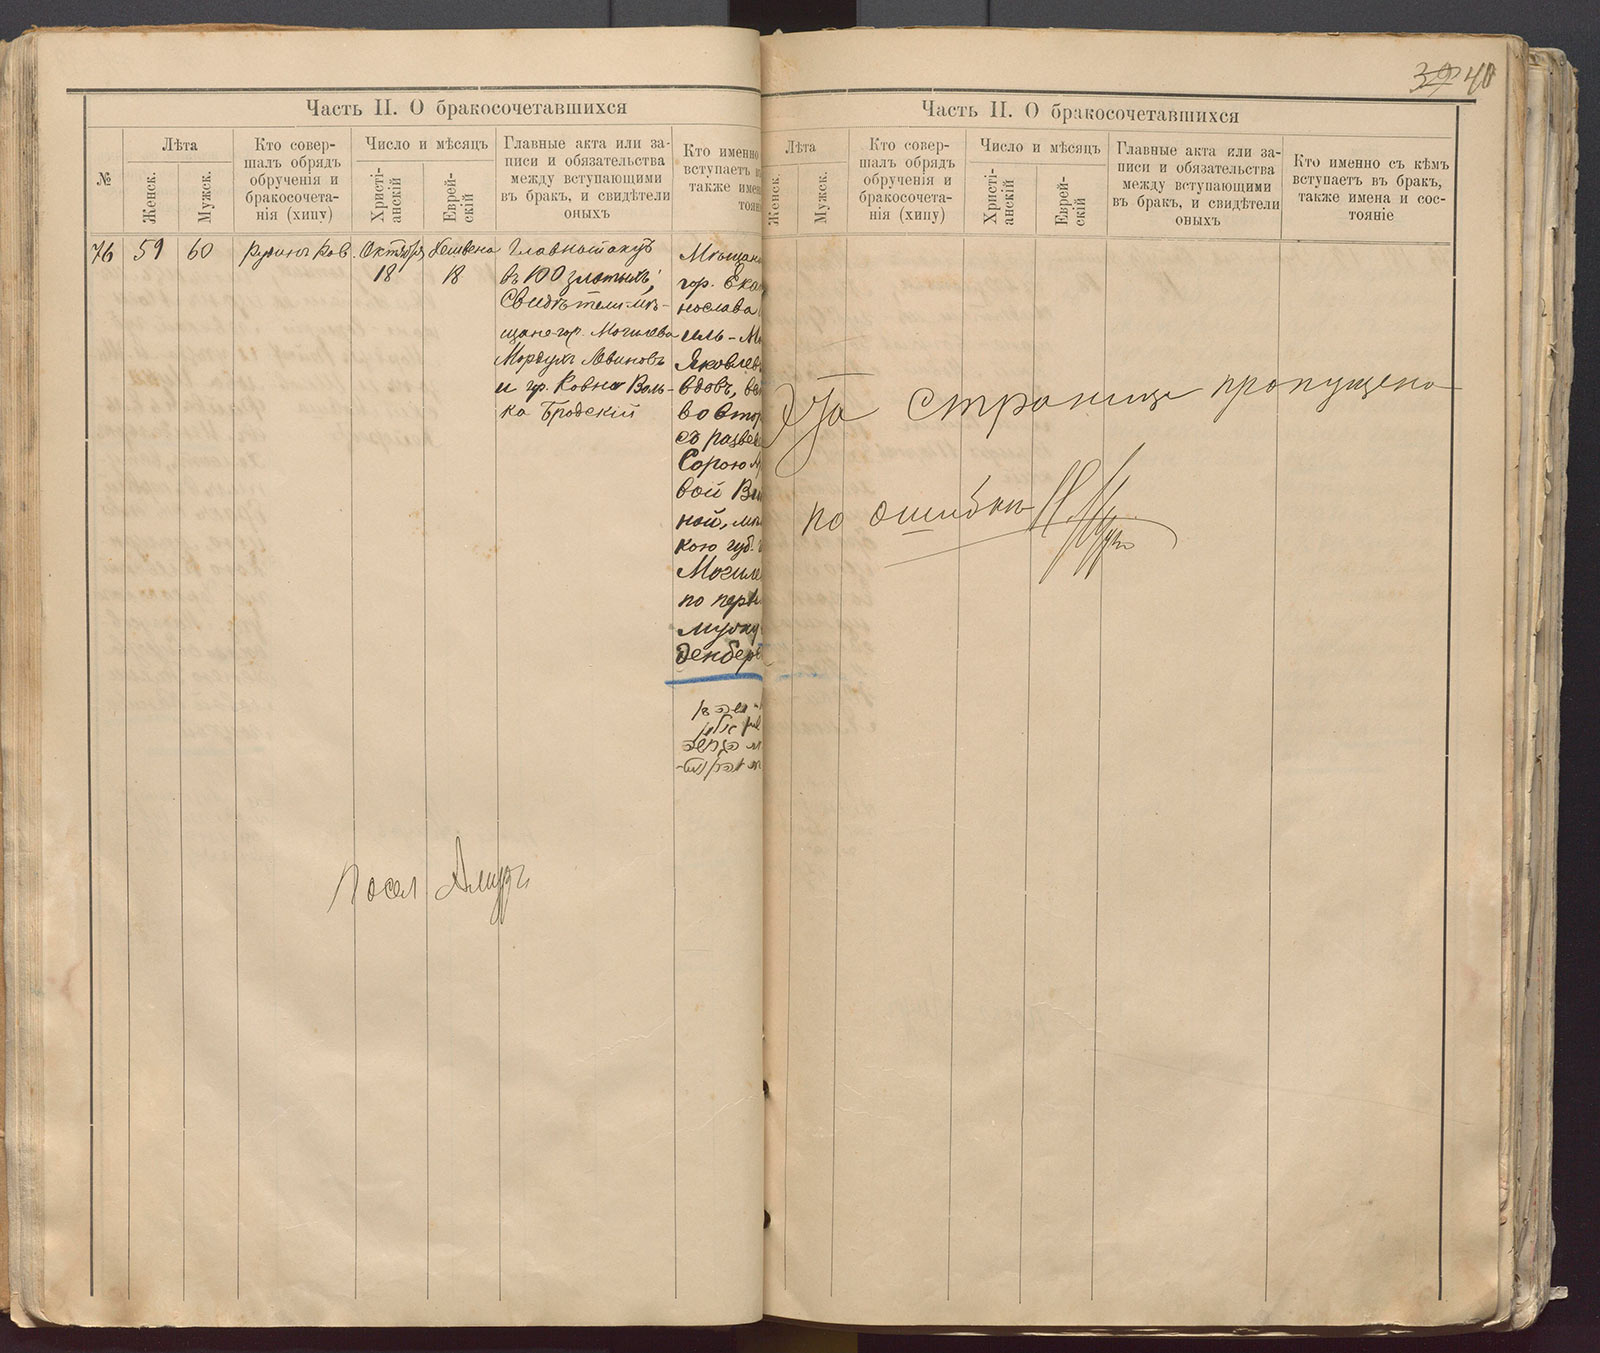 Часть II. О бракосочетавшихся
№
Лѣта
Женск.
Мужск.
Кто совер-
шалъ обрядъ
обрученія и
бракосочета-
нія (хипу)
Число и мѣсяцъ
Христі-
анскій
Еврей-
скій
Главные акта или за-
писи и обязательства
между вступающими
въ бракъ, и свидѣтели
оныхъ
Кто именно
вступаетъ в
также име
тоян
76
59
60
Рав.
Октября
18
Хешвена
18
Главный актъ
въ 100 злотыхъ;
Свидѣтели-мѣ-
щане гор. Могилева
Мордухъ Левиновъ
и гр. Ковна Воль-
ка Бродскій
Мѣщан
гор. Ека
нослава
ель-М
Яковлев
вдовъ, вс
во втор
съ разве
Сорою М
вой В
ной, мо
кою губ.
Могиле
по перв
мужу
денбер
Посел Амуръ
39 40
Часть II. О бракосочетавшихся
Лѣта
Женск.
Мужск.
Кто совер-
шалъ обрядъ
обрученія и
бракосочета-
нія (хипу)
Число и мѣсяцъ
Христі-
анскій
Еврей-
скій
Главные акта или за-
писи и обязательства
между вступающими
въ бракъ, и свидѣтели
оныхъ
Кто именно съ кѣмъ
вступаетъ въ бракъ,
также имена и сос-
тояніе
Эта страница пропущена
по ошибкѣ